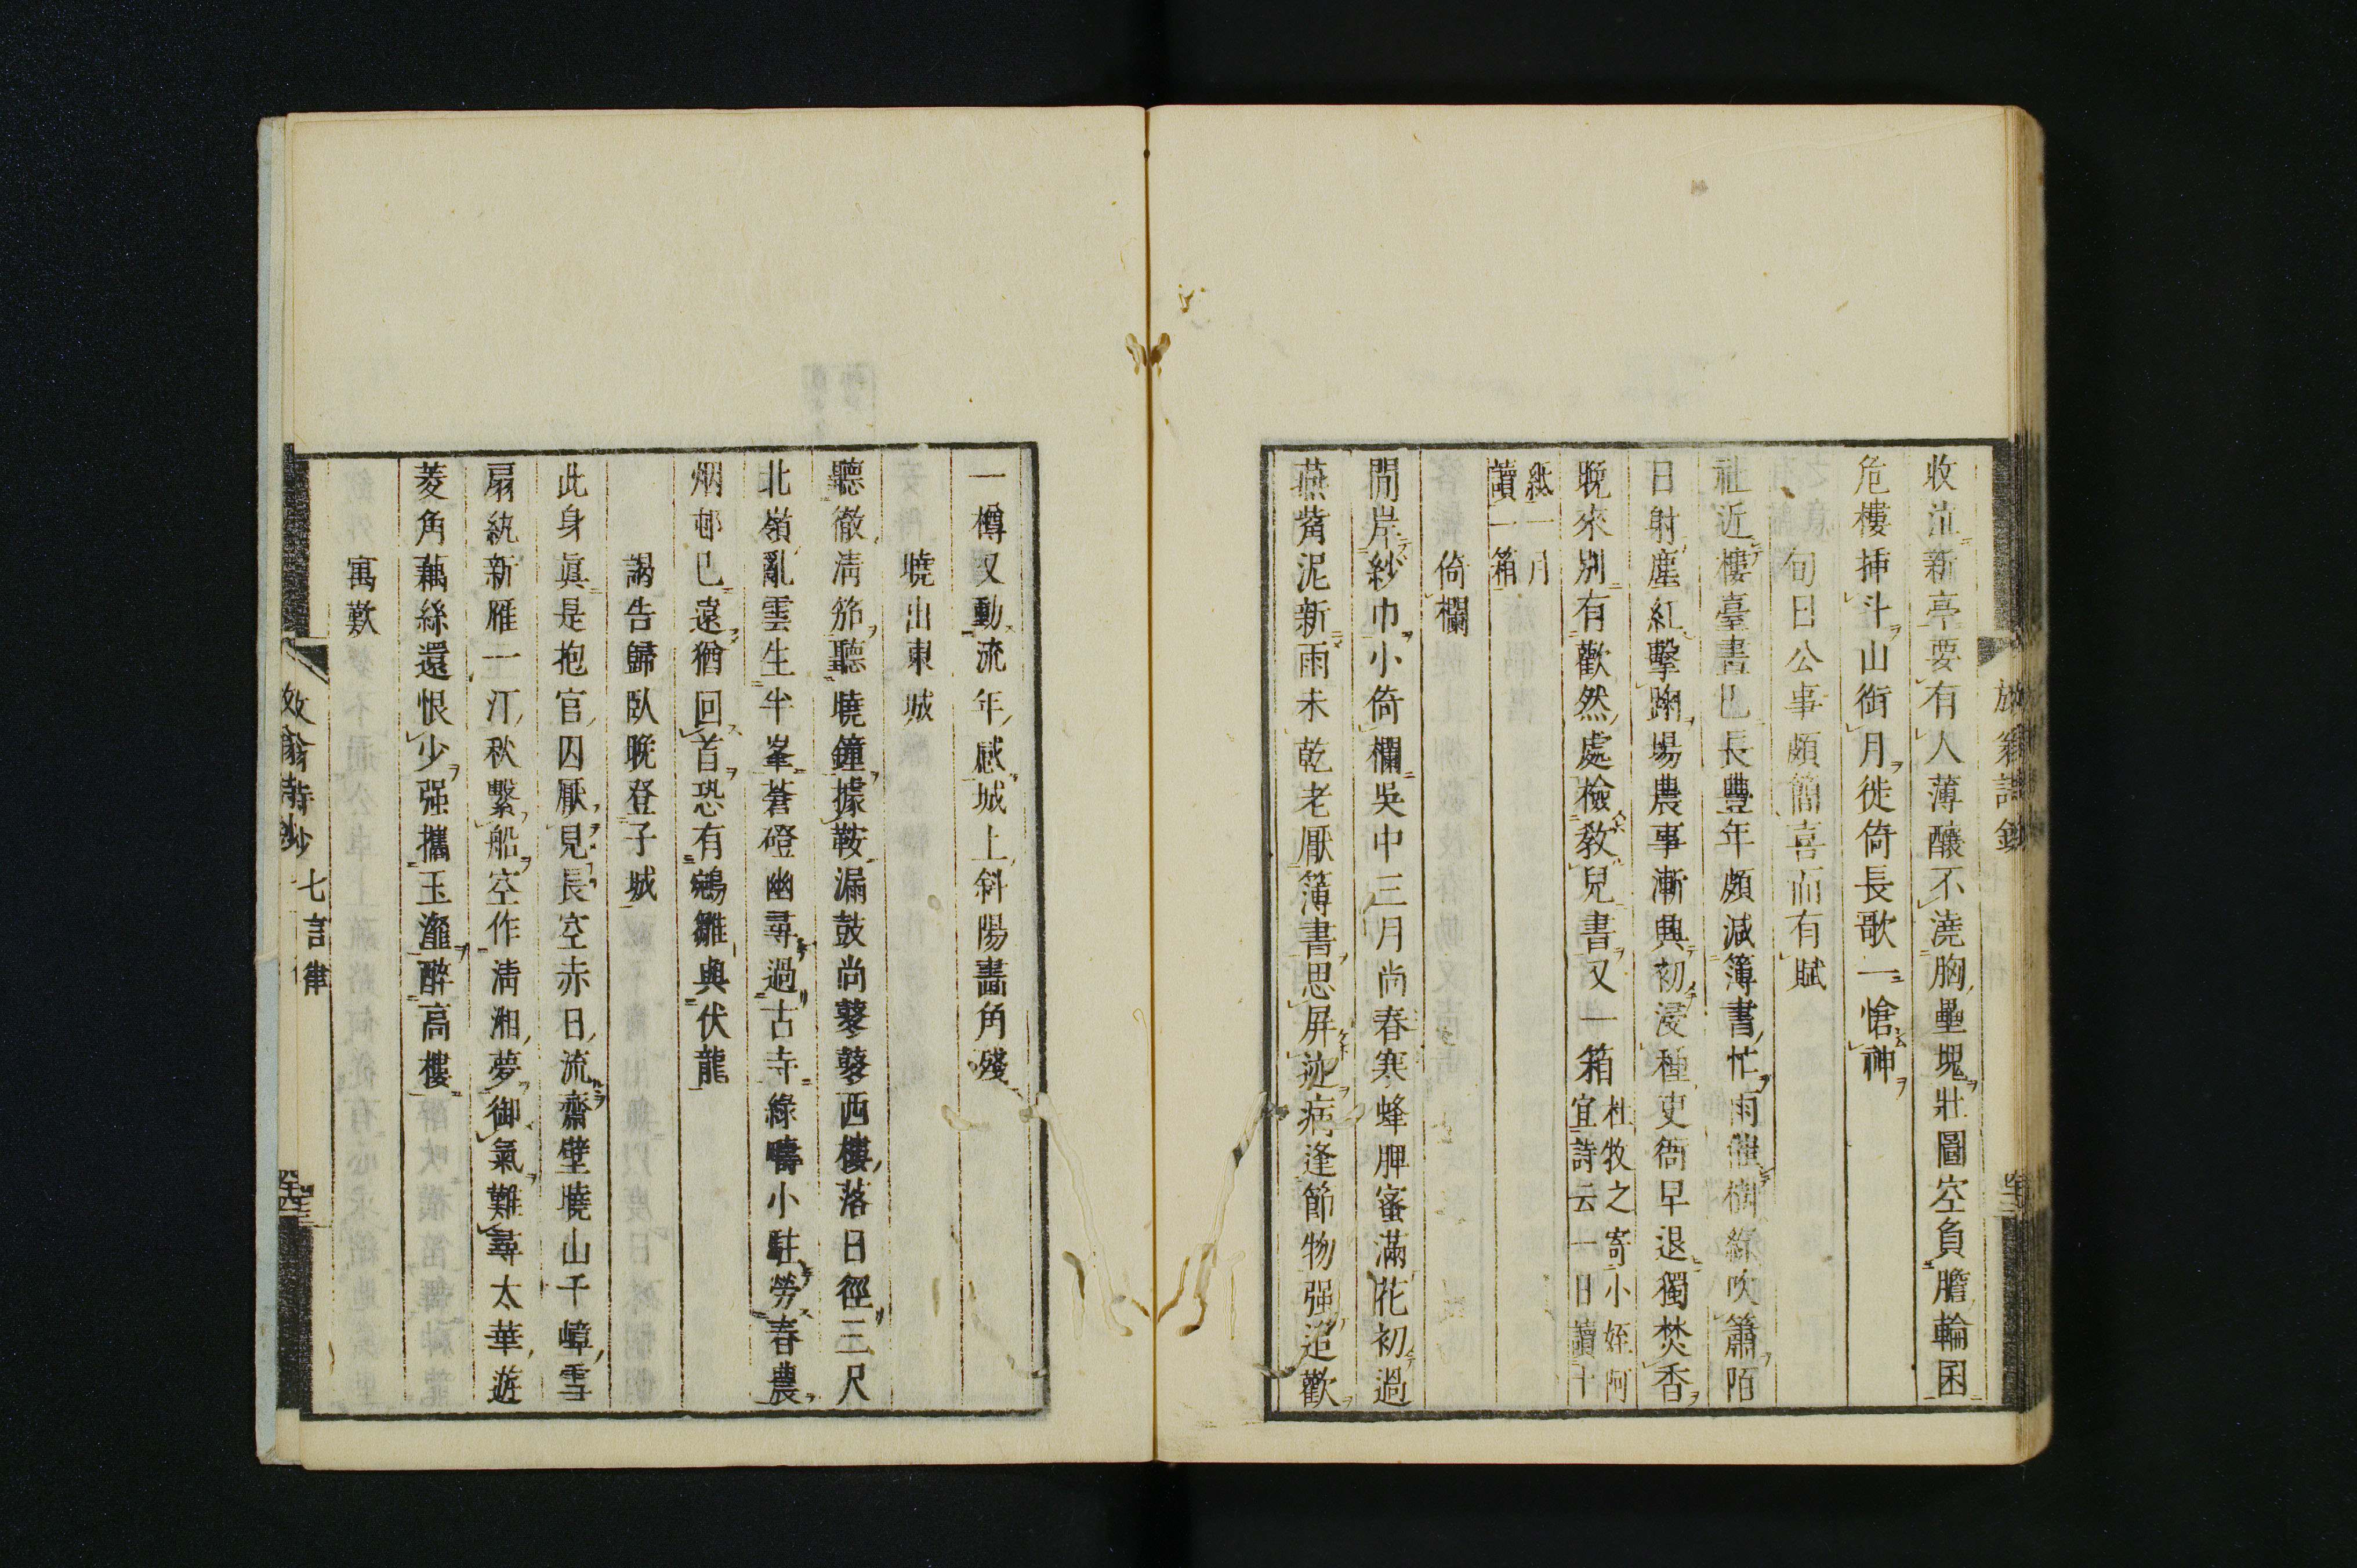 收泣新亭要有人薄釀不澆胸壘塊壯圖空負膽輪囷
危樓揷斗山銜月徙倚長歌一愴神
旬日公事頗簡喜而有賦
社近樓臺晝已長豐年頗減簿書忙雨催樹綠吹簫陌
日射塵紅擊踘場農事漸興初浸種吏衙早退獨焚香
晚來別有歡然處檢敎兒書又一箱杜牧之寄小姪阿
宜詩云一日讀十
紙一月
讀一箱
倚欄
閒岸紗巾小倚欄吳中三月尚春寒蜂脾蜜滿花初過
燕觜泥新雨未乾老厭簿書思屏迹病逢節物强追歡
一樽又動流年感城上斜陽畵角殘
曉出東城
聽徹淸笳聽曉鐘據鞍漏鼓尚鼕鼕西樓落日徑三尺
北嶺亂雲生半峯蒼磴幽尋過古寺綠疇小駐勞春農
烟邨已遠猶回首恐有鵷雛與伏龍
謁告歸臥晚登子城
此身眞是抱官囚厭見長空赤日流齋壁曉山千嶂雪
扇紈新雁一汀秋繫船空作淸湘夢御氣難尋太華遊
菱角藕絲還恨少强攜玉瀣醉高樓
寓歎
放翁詩鈔 七言律